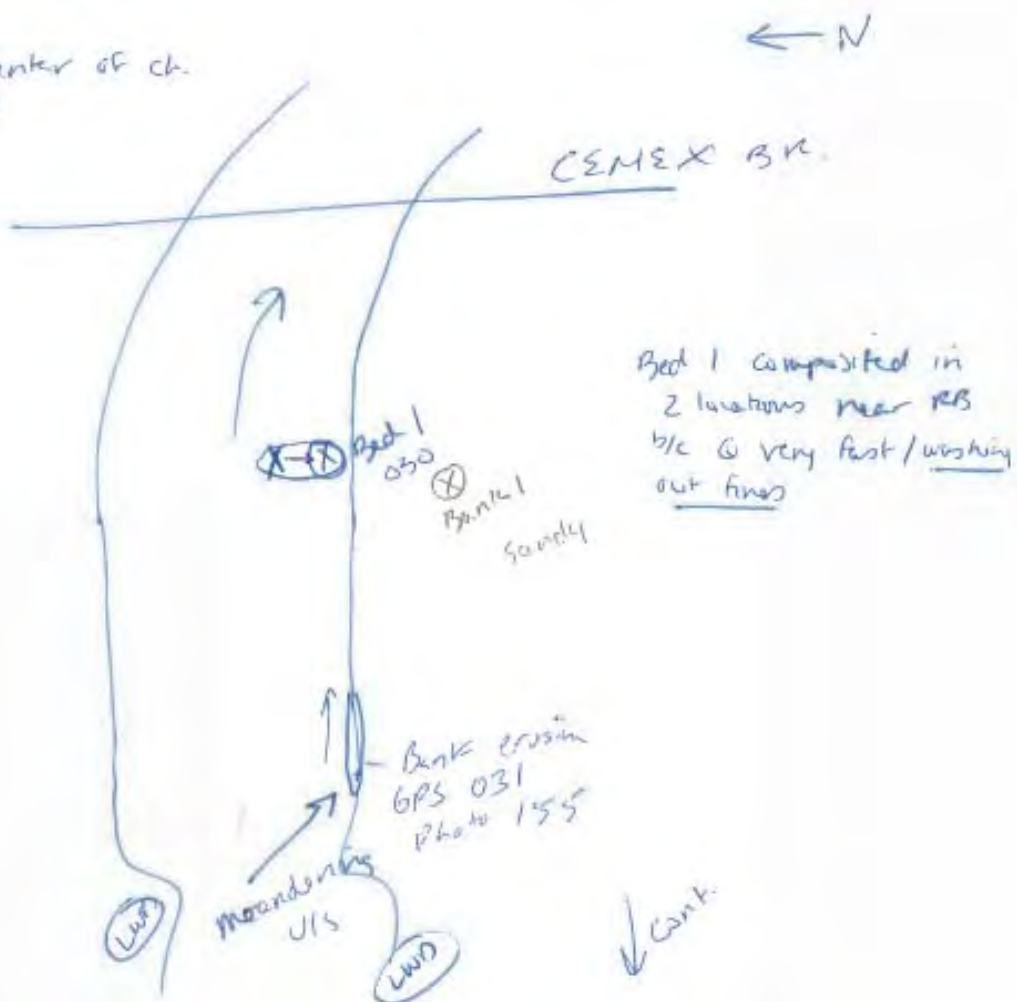 ← N
center of ch.
CEMEX BR.
Bed 1 composited in
2 locations near RB
b/c @ very fast / washing
out fines
X → X
Bed 1
030
X
Bank 1
Sandy
Bank erosion
GPS 031
Photo 155
meandering
U/S
LWD
LWD
↓ Cont.